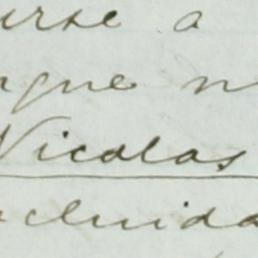 urse a
rque n
Nicolas
acluida